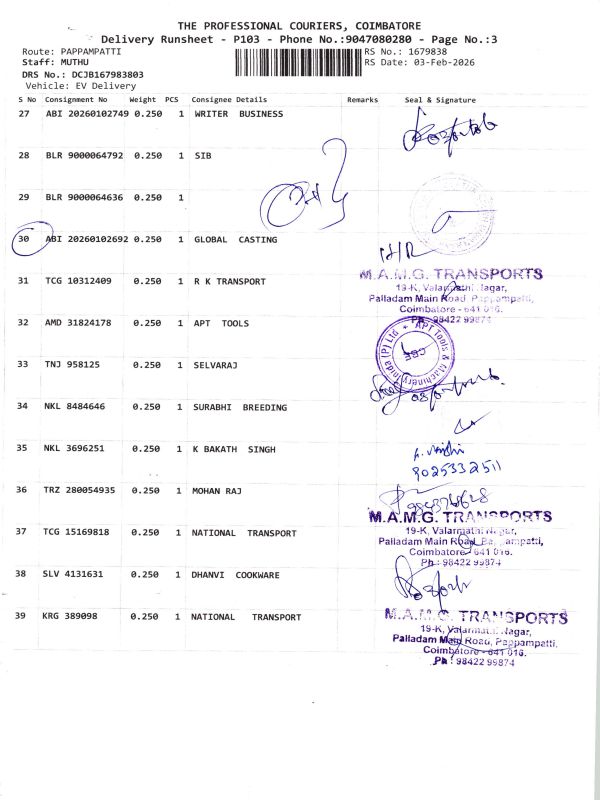 THE PROFESSIONAL COURIERS, COIMBATORE
Delivery Runsheet - P103 - Phone No.:9047080280 - Page No.:3
Route: PAPPAMPATTI
RS No.: 1679838
Staff: MUTHU
RS Date: 03-Feb-2026
DRS No.: DCJB167983803
Vehicle: EV Delivery
S No Consignment No Weight PCS Consignee Details Remarks Seal & Signature
27 ABI 20260102749 0.250 1 WRITER BUSINESS
28 BLR 9000064792 0.250 1 SIB
29 BLR 9000064636 0.250 1
30 ABI 20260102692 0.250 1 GLOBAL CASTING
31 TCG 10312409 0.250 1 R K TRANSPORT
M.A.M.G. TRANSPORTS
19-K, Valarmathi Nagar,
Palladam Main Road, Pappampatti,
Coimbatore - 641 016.
Ph : 98422 99874
32 AMD 31824178 0.250 1 APT TOOLS
33 TNJ 958125 0.250 1 SELVARAJ
34 NKL 8484646 0.250 1 SURABHI BREEDING
35 NKL 3696251 0.250 1 K BAKATH SINGH
9025332511
36 TRZ 280054935 0.250 1 MOHAN RAJ
M.A.M.G. TRANSPORTS
37 TCG 15169818 0.250 1 NATIONAL TRANSPORT
19-K, Valarmathi Nagar,
Palladam Main Road, Pappampatti,
Coimbatore - 641 016.
Ph : 98422 99874
38 SLV 4131631 0.250 1 DHANVI COOKWARE
39 KRG 389098 0.250 1 NATIONAL TRANSPORT
M.A.M.G. TRANSPORTS
19-K, Valarmathi Nagar,
Palladam Main Road, Pappampatti,
Coimbatore - 641 016.
Ph : 98422 99874